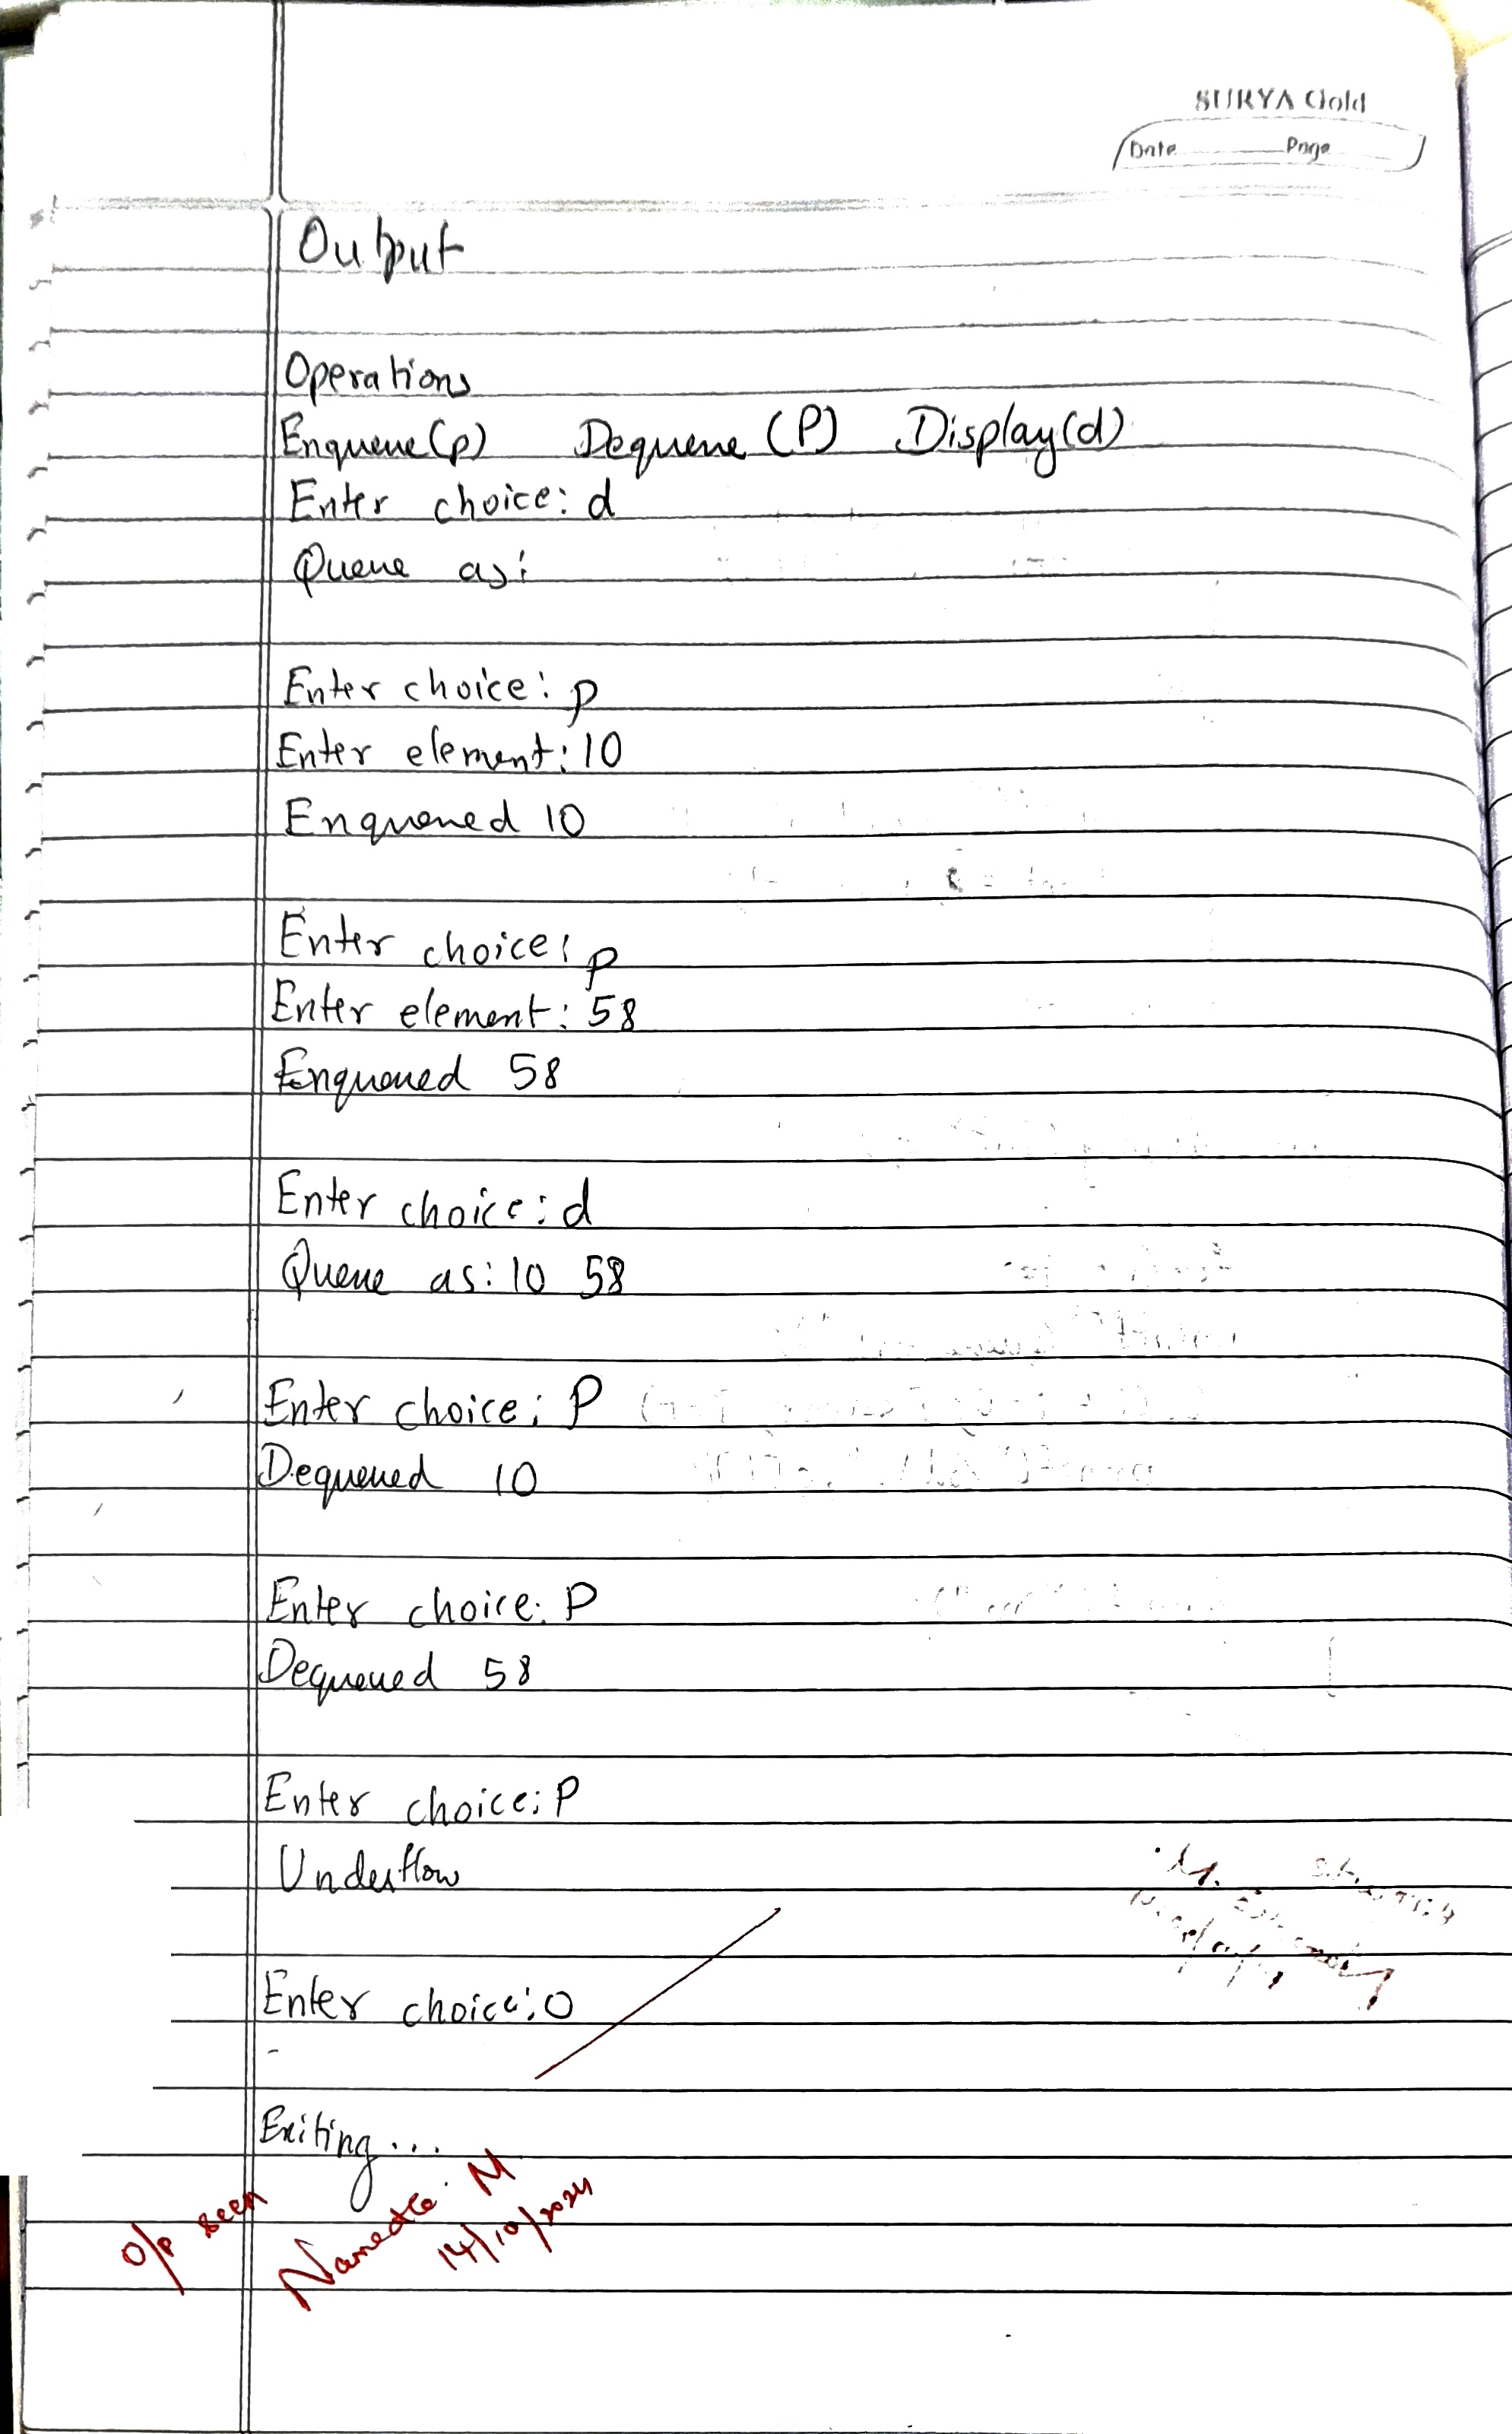 SURYA Gold
Date Page
Output
Operations
Enqueue(p) Dequeue (P) Display(d)
Enter choice: d
Queue as:
Enter choice: p
Enter element: 10
Enqueued 10
Enter choice: p
Enter element: 58
Enqueued 58
Enter choice: d
Queue as: 10 58
Enter choice: P
Dequeued 10
Enter choice: P
Dequeued 58
Enter choice: P
Underflow
Enter choice: 0
Exiting...
O/P seen
M
14/10/2024